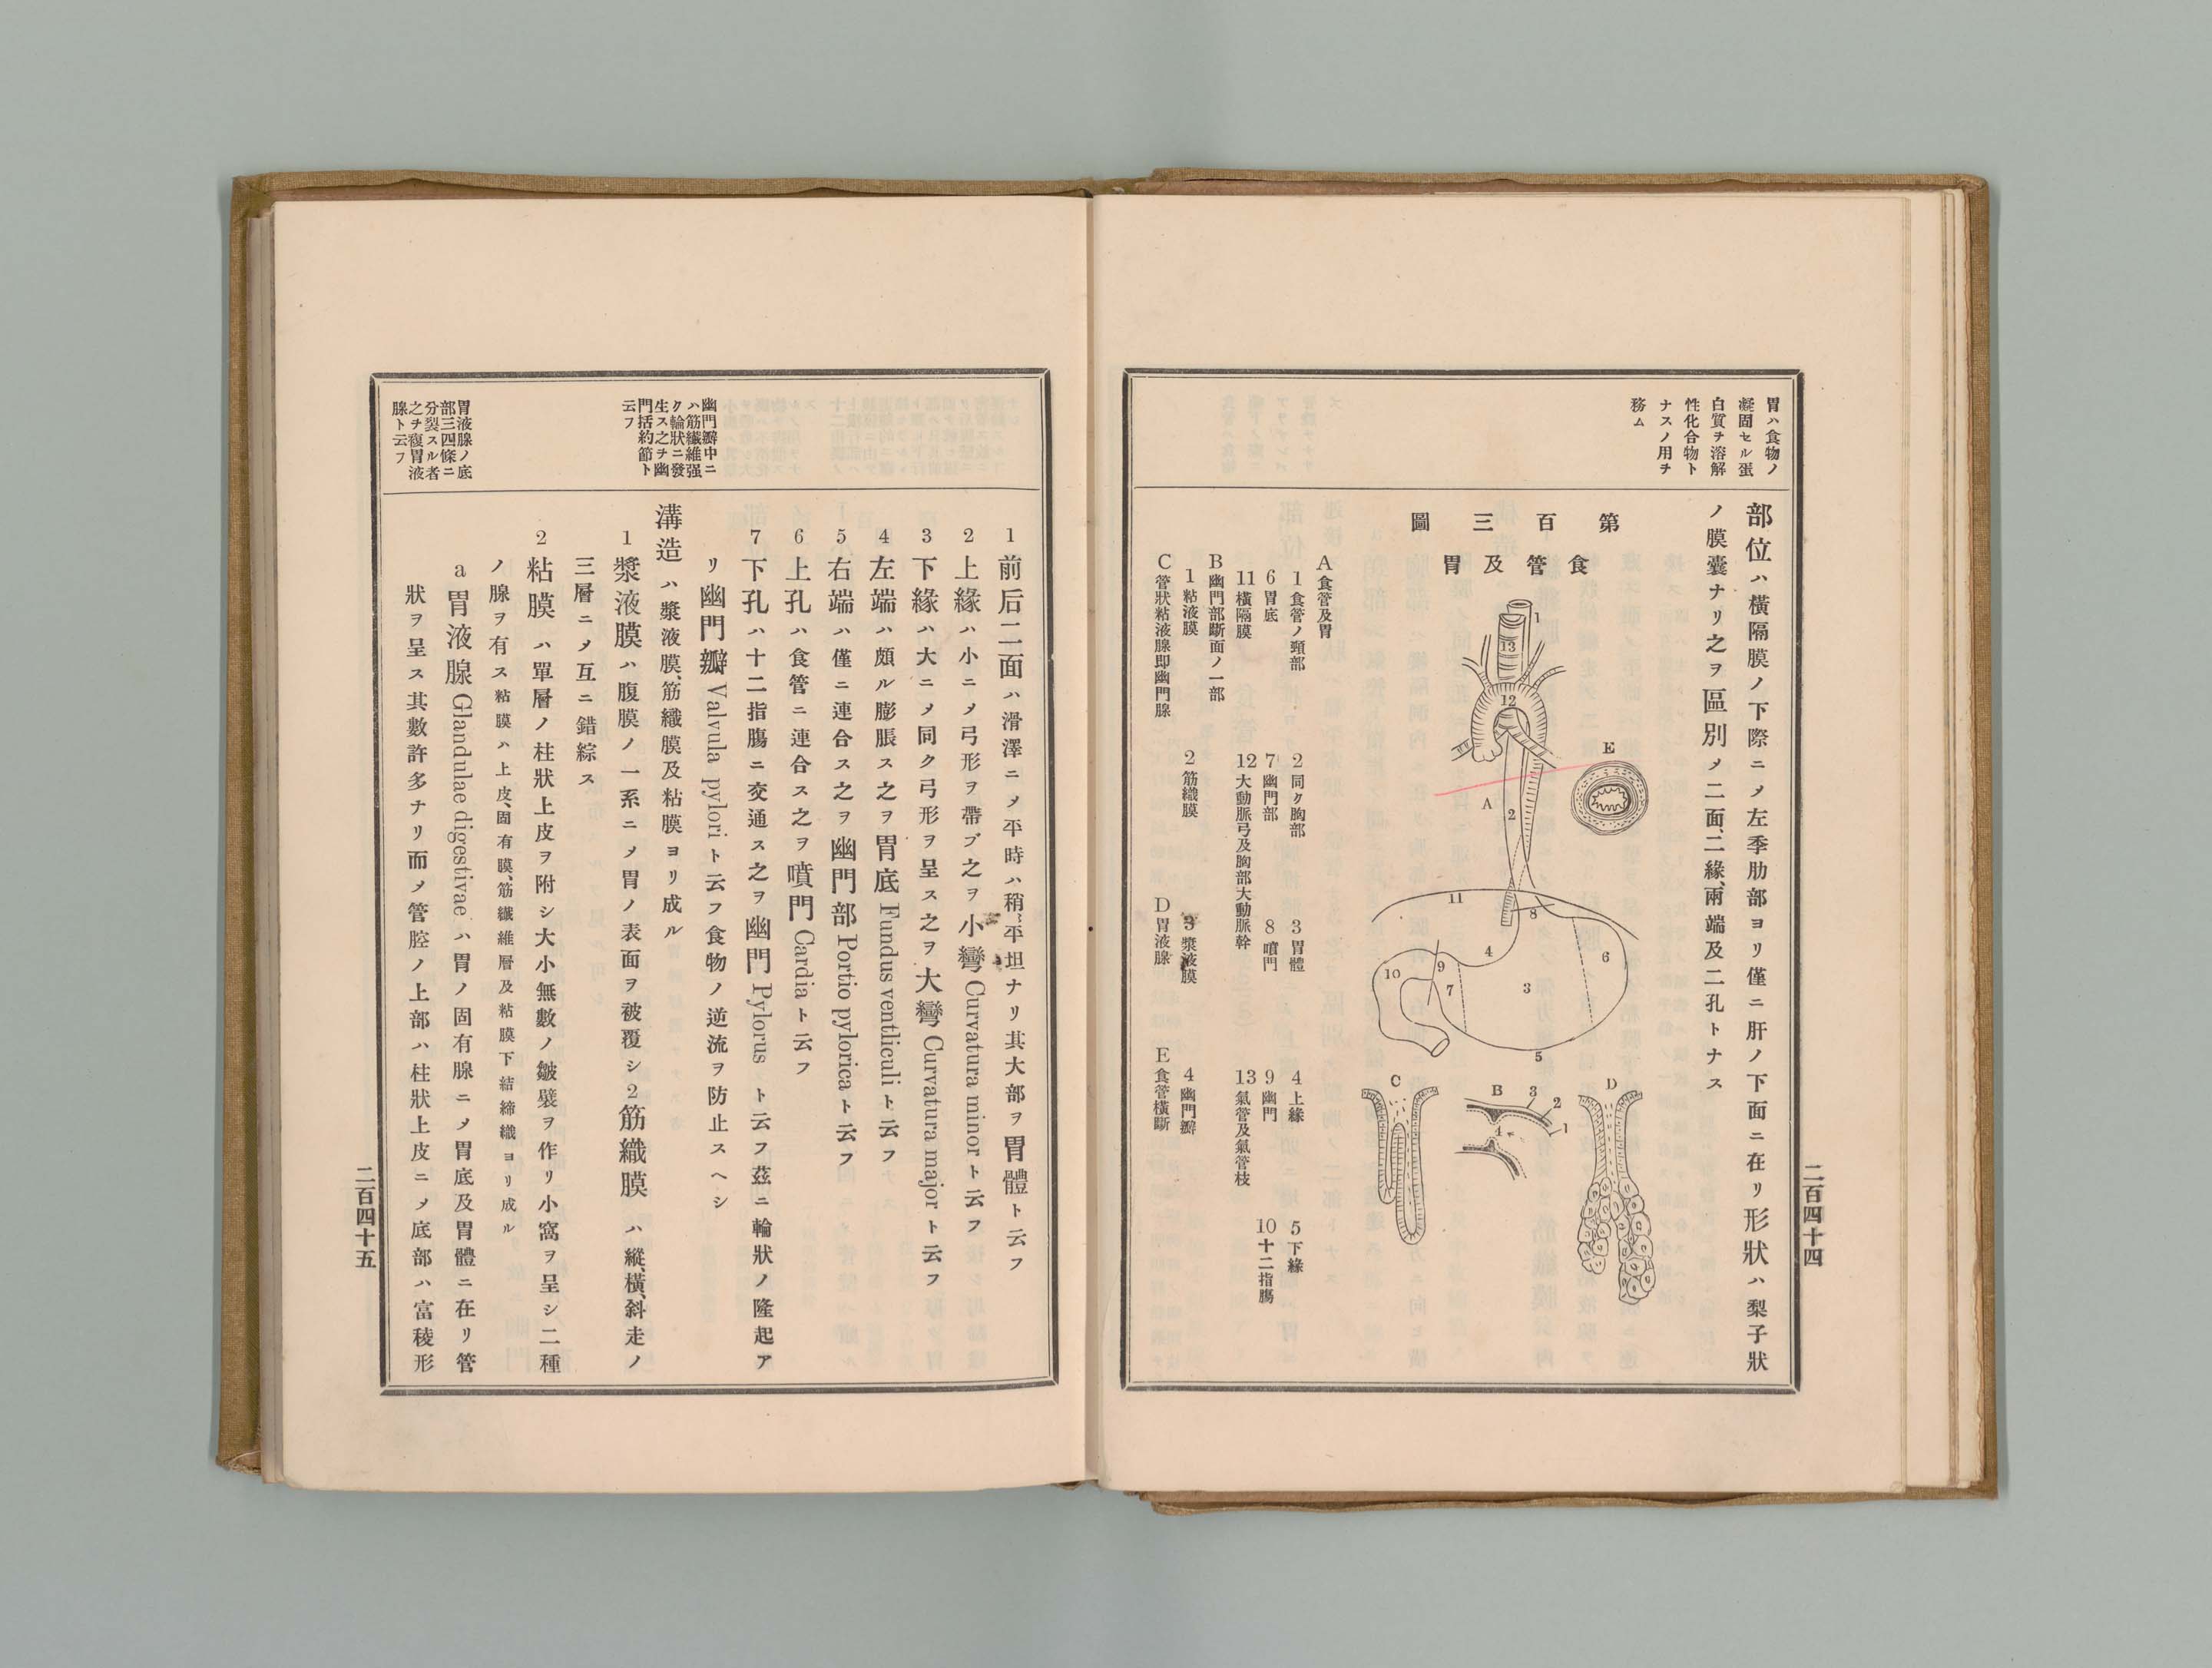 胃ハ食物ノ
凝固セル蛋
白質ヲ溶解
性化合物ト
ナスノ用ヲ
務ム
部位ハ橫隔膜ノ下際ニ〆左季肋部ヨリ僅ニ肝ノ下面ニ在リ形狀ハ梨子狀
ノ膜囊ナリ之ヲ區別〆二面、二緣、兩端及二孔トナス
第百三圖
食管及胃
1
13
12
E
A
2
11
8
6
4
9
10
3
7
5
C
B
3
2
1
4
D
A 食管及胃
1 食管ノ頸部 2 同ク胸部 3 胃體 4 上緣 5 下緣
6 胃底 7 幽門部 8 噴門 9 幽門 10 十二指膓
11 橫隔膜 12 大動脈弓及胸部大動脈幹 13 氣管及氣管枝
B 幽門部斷面ノ一部
1 粘液膜 2 筋織膜 3 漿液膜 4 幽門瓣
C 管狀粘液腺即幽門腺 D 胃液腺 E 食管橫斷
二百四十四
幽門瓣中ニ
ハ筋纖維强
ク輪狀ニ發
生ス之ヲ幽
門括約節ト
云フ
胃液腺ノ底
部三四條ニ
分裂スル者
之ヲ複胃液
腺ト云フ
1 前后二面ハ滑澤ニ〆平時ハ稍平坦ナリ其大部ヲ胃體ト云フ
2 上緣ハ小ニ〆弓形ヲ帶ブ之ヲ小彎 Curvatura minor ト云フ
3 下緣ハ大ニ〆同ク弓形ヲ呈ス之ヲ大彎 Curvatura major ト云フ
4 左端ハ頗ル膨脹ス之ヲ胃底 Fundus ventliculi ト云フ
5 右端ハ僅ニ連合ス之ヲ幽門部 Portio pylorica ト云フ
6 上孔ハ食管ニ連合ス之ヲ噴門 Cardia ト云フ
7 下孔ハ十二指膓ニ交通ス之ヲ幽門 Pylorus ト云フ茲ニ輪狀ノ隆起ア
リ幽門瓣 Valvula pylori ト云フ食物ノ逆流ヲ防止スヘシ
溝造ハ漿液膜、筋織膜及粘膜ヨリ成ル
1 漿液膜ハ腹膜ノ一系ニ〆胃ノ表面ヲ被覆シ 2 筋織膜ハ縱、橫、斜走ノ
三層ニ〆互ニ錯綜ス
2 粘膜ハ單層ノ柱狀上皮ヲ附シ大小無數ノ皺襞ヲ作リ小窩ヲ呈シ二種
ノ腺ヲ有ス粘膜ハ上皮、固有膜、筋纖維層及粘膜下結締織ヨリ成ル
a 胃液腺 Glandulae digestivae ハ胃ノ固有腺ニ〆胃底及胃體ニ在リ管
狀ヲ呈ス其數許多ナリ而〆管腔ノ上部ハ柱狀上皮ニ〆底部ハ富稜形
二百四十五